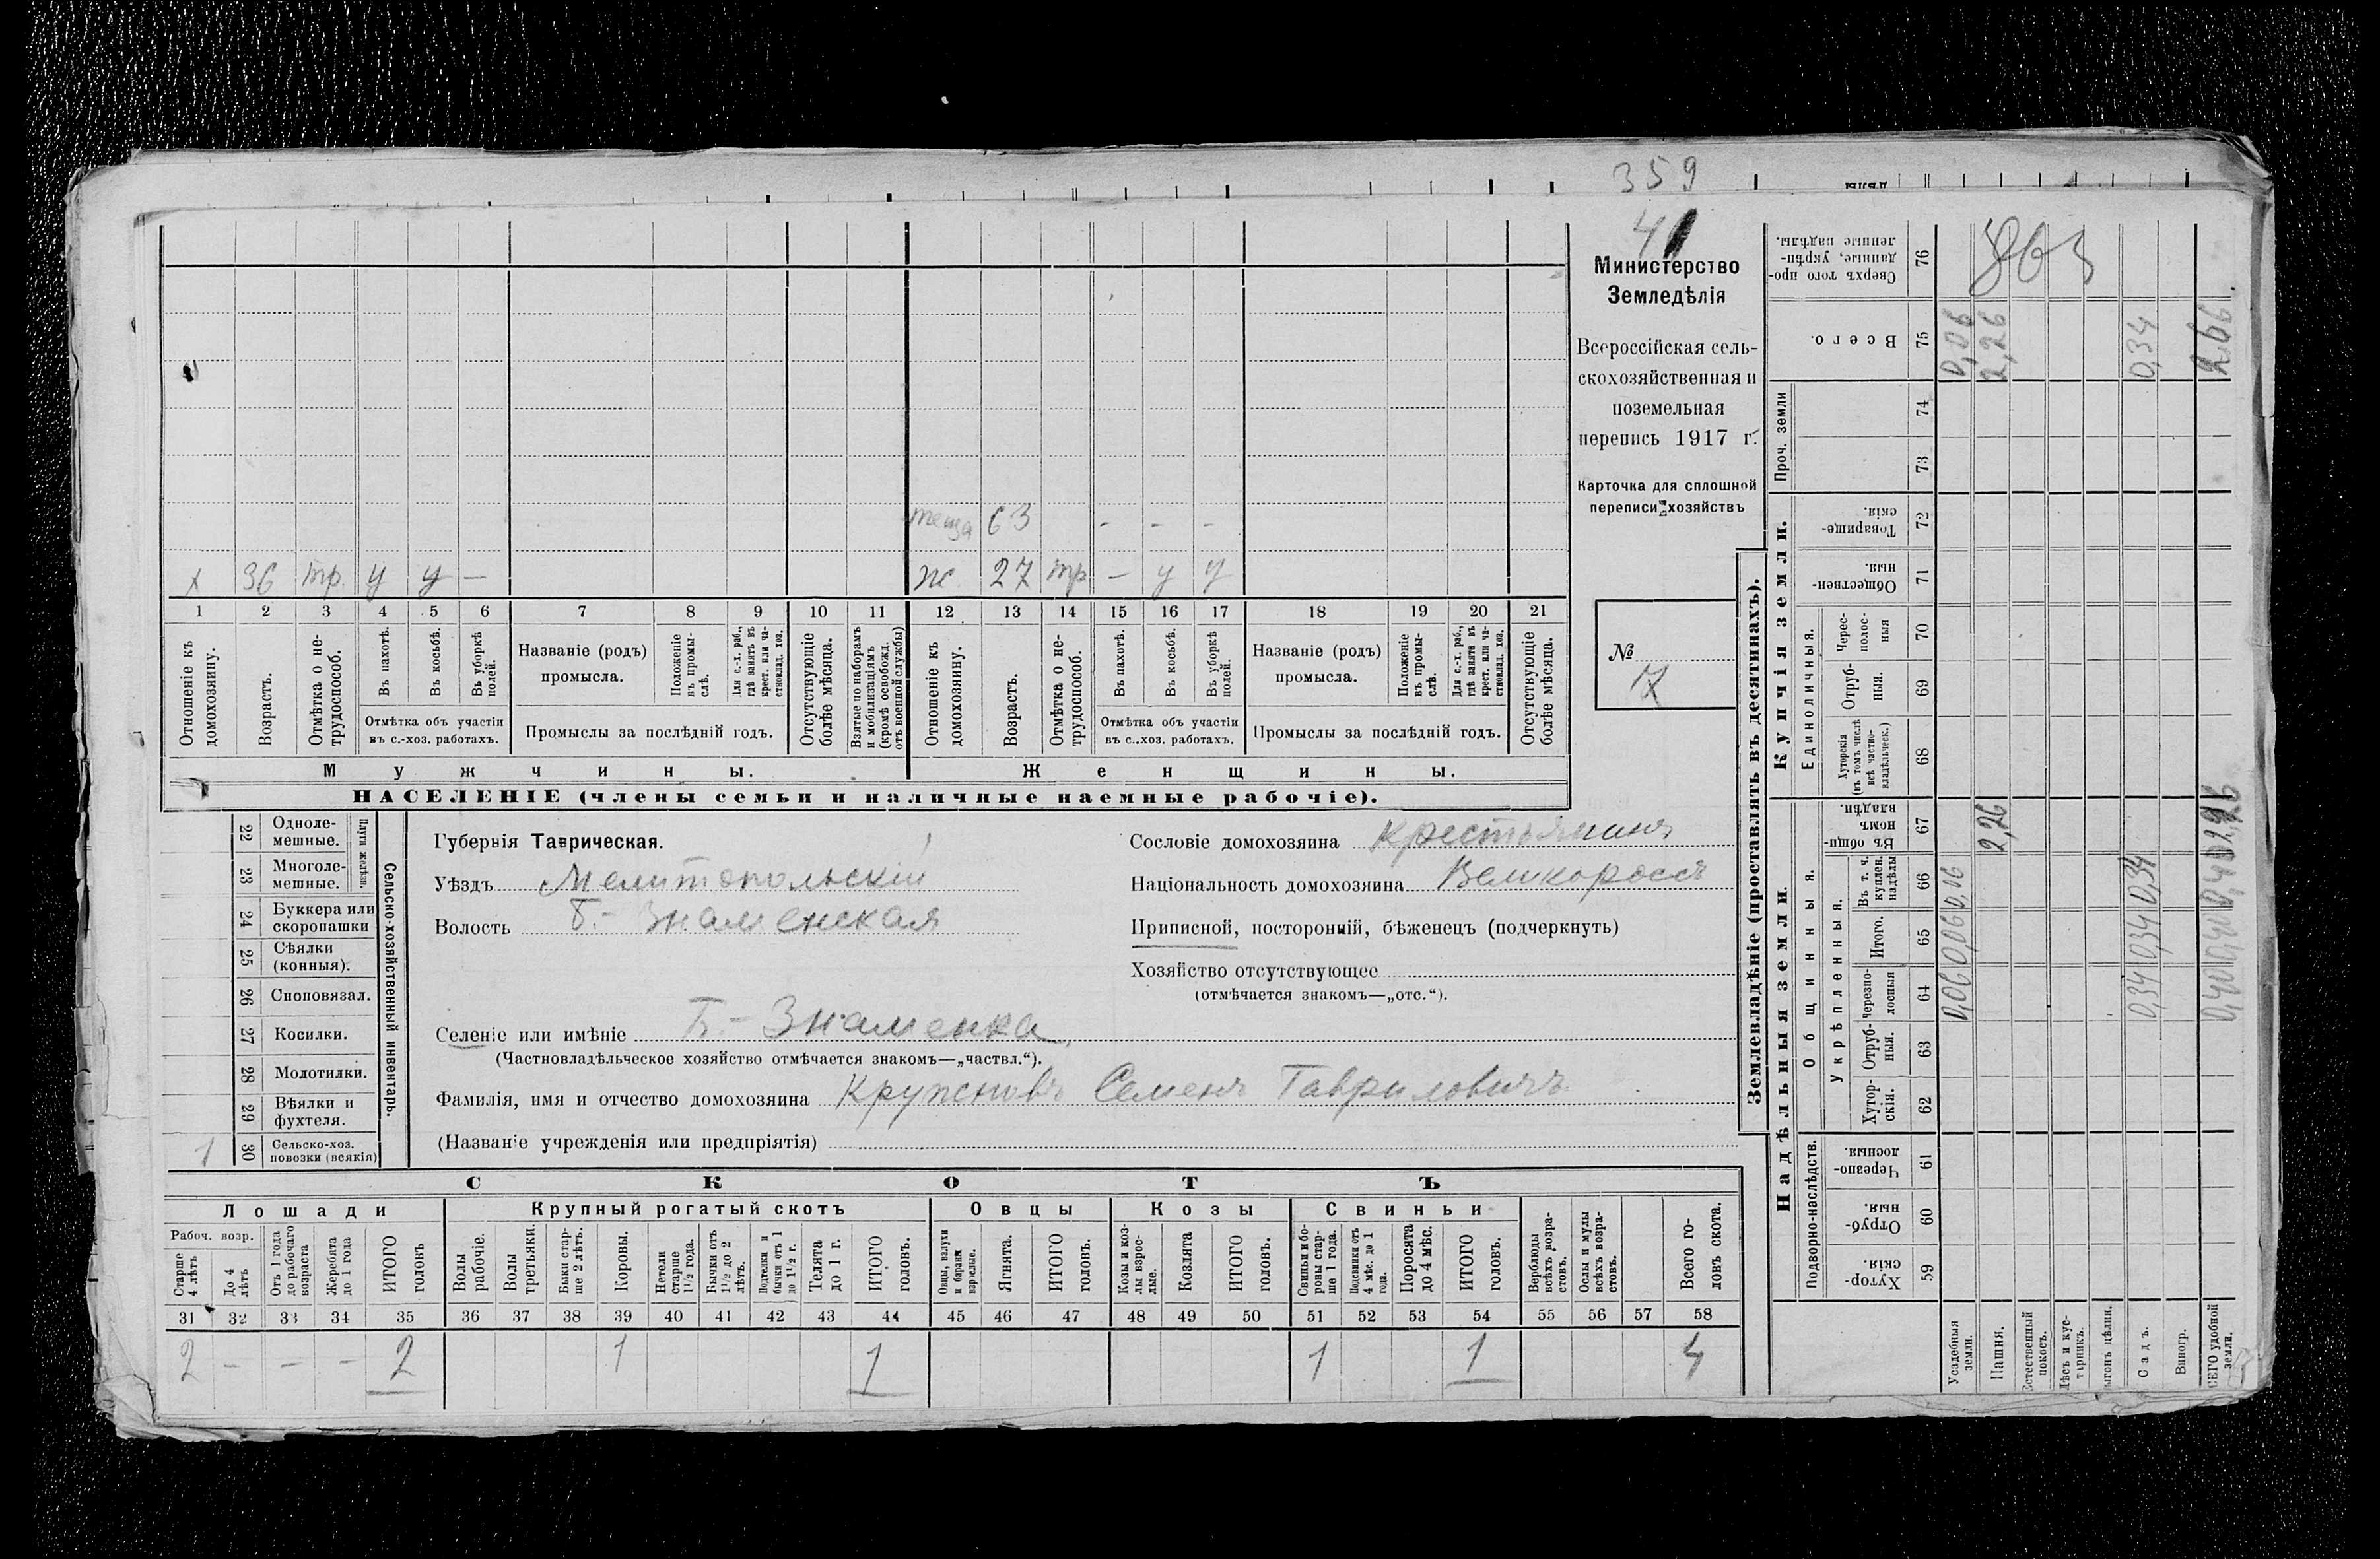 359
41
Министерство
Земледѣлія
Всероссійская сель-
скохозяйственная и
поземельная
перепись 1917 г.
Карточка для сплошной
переписи хозяйствъ
№
теща 63 - - -
х 36 тр. у у — ж 27 тр — у у
1 2 3 4 5 6 7 8 9 10 11 12 13 14 15 16 17 18 19 20 21
Отношеніе къ домохозяину.
Возрастъ.
Отмѣтка о не-трудоспособ.
Въ пахотѣ.
Въ косьбѣ.
Въ уборкѣ полей.
Отмѣтка объ участіи
въ с.-хоз. работахъ.
Названіе (родъ)
промысла.
Положеніе въ промы-слѣ.
Для с.-х. раб., гдѣ занятъ въ крест. или ча-стновлад. хоз.
Промыслы за послѣдній годъ.
Отсутствующіе болѣе мѣсяца.
Взятые по наборамъ и мобилизаціямъ (кромѣ освобожд. отъ военной службы)
Отношеніе къ домохозяину.
Возрастъ.
Отмѣтка о не-трудоспособ.
Въ пахотѣ.
Въ косьбѣ.
Въ уборкѣ полей.
Отмѣтка объ участіи
въ с..хоз. работахъ.
Названіе (родъ)
промысла.
Положеніе въ промы-слѣ.
Для с.-х. раб., гдѣ занята въ крест. или ча-стновлад. хоз.
Промыслы за послѣдній годъ.
Отсутствующіе болѣе мѣсяца.
Мужчины. Женщины.
НАСЕЛЕНІЕ (члены семьи и наличные наемные рабочіе).
22 Одноле-мешные.
23 Многоле-мешные.
Плуги желѣзн.
24 Буккера или скоропашки
25 Сѣялки (конныя).
26 Сноповязал.
27 Косилки.
28 Молотилки.
29 Вѣялки и фухтеля.
1 30 Сельско-хоз. повозки (всякія)
Сельско-хозяйственный инвентарь.
Губернія Таврическая.
Уѣздъ Мелитопольскій
Волость Б.- Знаменская
Селеніе или имѣніе Б.- Знаменка
(Частновладѣльческое хозяйство отмѣчается знакомъ—„частвл.“).
Фамилія, имя и отчество домохозяина Семенъ Гавриловичъ
(Названіе учрежденія или предпріятія)
Сословіе домохозяина Крестьянинъ
Національность домохозяина Великороссъ
Приписной, посторонній, бѣженецъ (подчеркнуть)
Хозяйство отсутствующее
(отмѣчается знакомъ—„отс.“).
СКОТЪ
Лошади
Рабоч. возр.
Старше 4 лѣтъ
До 4 лѣтъ
Отъ 1 года до рабочаго возраста
Жеребята до 1 года
ИТОГО головъ
Крупный рогатый скотъ
Волы рабочіе.
Волы третьяки.
Быки стар-ше 2 лѣтъ.
Коровы.
Нетели старше 1½ года.
Бычки отъ 1½ до 2 лѣтъ.
Подтелки и бычки отъ 1 до 1½ г.
Телята до 1 г.
ИТОГО головъ.
Овцы
Овцы, валухи и бараны взрослые.
Ягнята.
ИТОГО головъ.
Козы
Козы и коз-лы взрос-лые.
Козлята
ИТОГО головъ.
Свиньи
Свиньи и бо-ровы стар-ше 1 года.
Подсвинки отъ 4 мѣс. до 1 года.
Поросята до 4 мѣс.
ИТОГО головъ.
Верблюды всѣхъ возра-стовъ.
Ослы и мулы всѣхъ возра-стовъ.
Всего го-ловъ скота.
31 32 33 34 35 36 37 38 39 40 41 42 43 44 45 46 47 48 49 50 51 52 53 54 55 56 57 58
2 — — — 2 1 1 1 1 4
Землевладѣніе (проставлять въ десятинахъ).
Купчія земли.
Надѣльныя земли.
Сверхъ того про-данные, укрѣп-ленные надѣлы. 76
Всего. 75
Проч. земли 74 73
Товарище-скія. 72
Обществен-ныя. 71
Единоличныя.
Черес-полос-ныя 70
Отруб-ныя. 69
Хуторскія (въ томъ числѣ всѣ частно-владѣльческ.) 68
Общинныя.
Въ общи-номъ владѣн. 67
Укрѣпленныя.
Въ т. ч. куплен. надѣлы 66
Итого. 65
Черезпо-лосныя 64
Отруб-ныя. 63
Хутор-скія. 62
Подворно-наслѣдств.
Черезпо-лосныя. 61
Отруб-ныя. 60
Хутор-скія. 59
Усадебныя земли. 0,06 0,06 0,06 0,06
Пашня. 2,26 2,26
Естественный покосъ.
Лѣсъ и кус-тарникъ.
Выгонъ цѣлин.
Садъ. 0,34 0,34 0,34 0,34
Виногр.
ВСЕГО удобной земли. 0,40 0,40 0,40 2,26 2,66